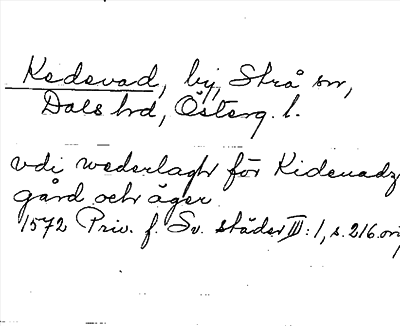 Kedevad, by, Strå sn,
Dals hrd, Österg. l.
vdi wederlagh för Kideuadz
gård och äger
1572 Priv. f. Sv. städer III:1, s. 216. ori